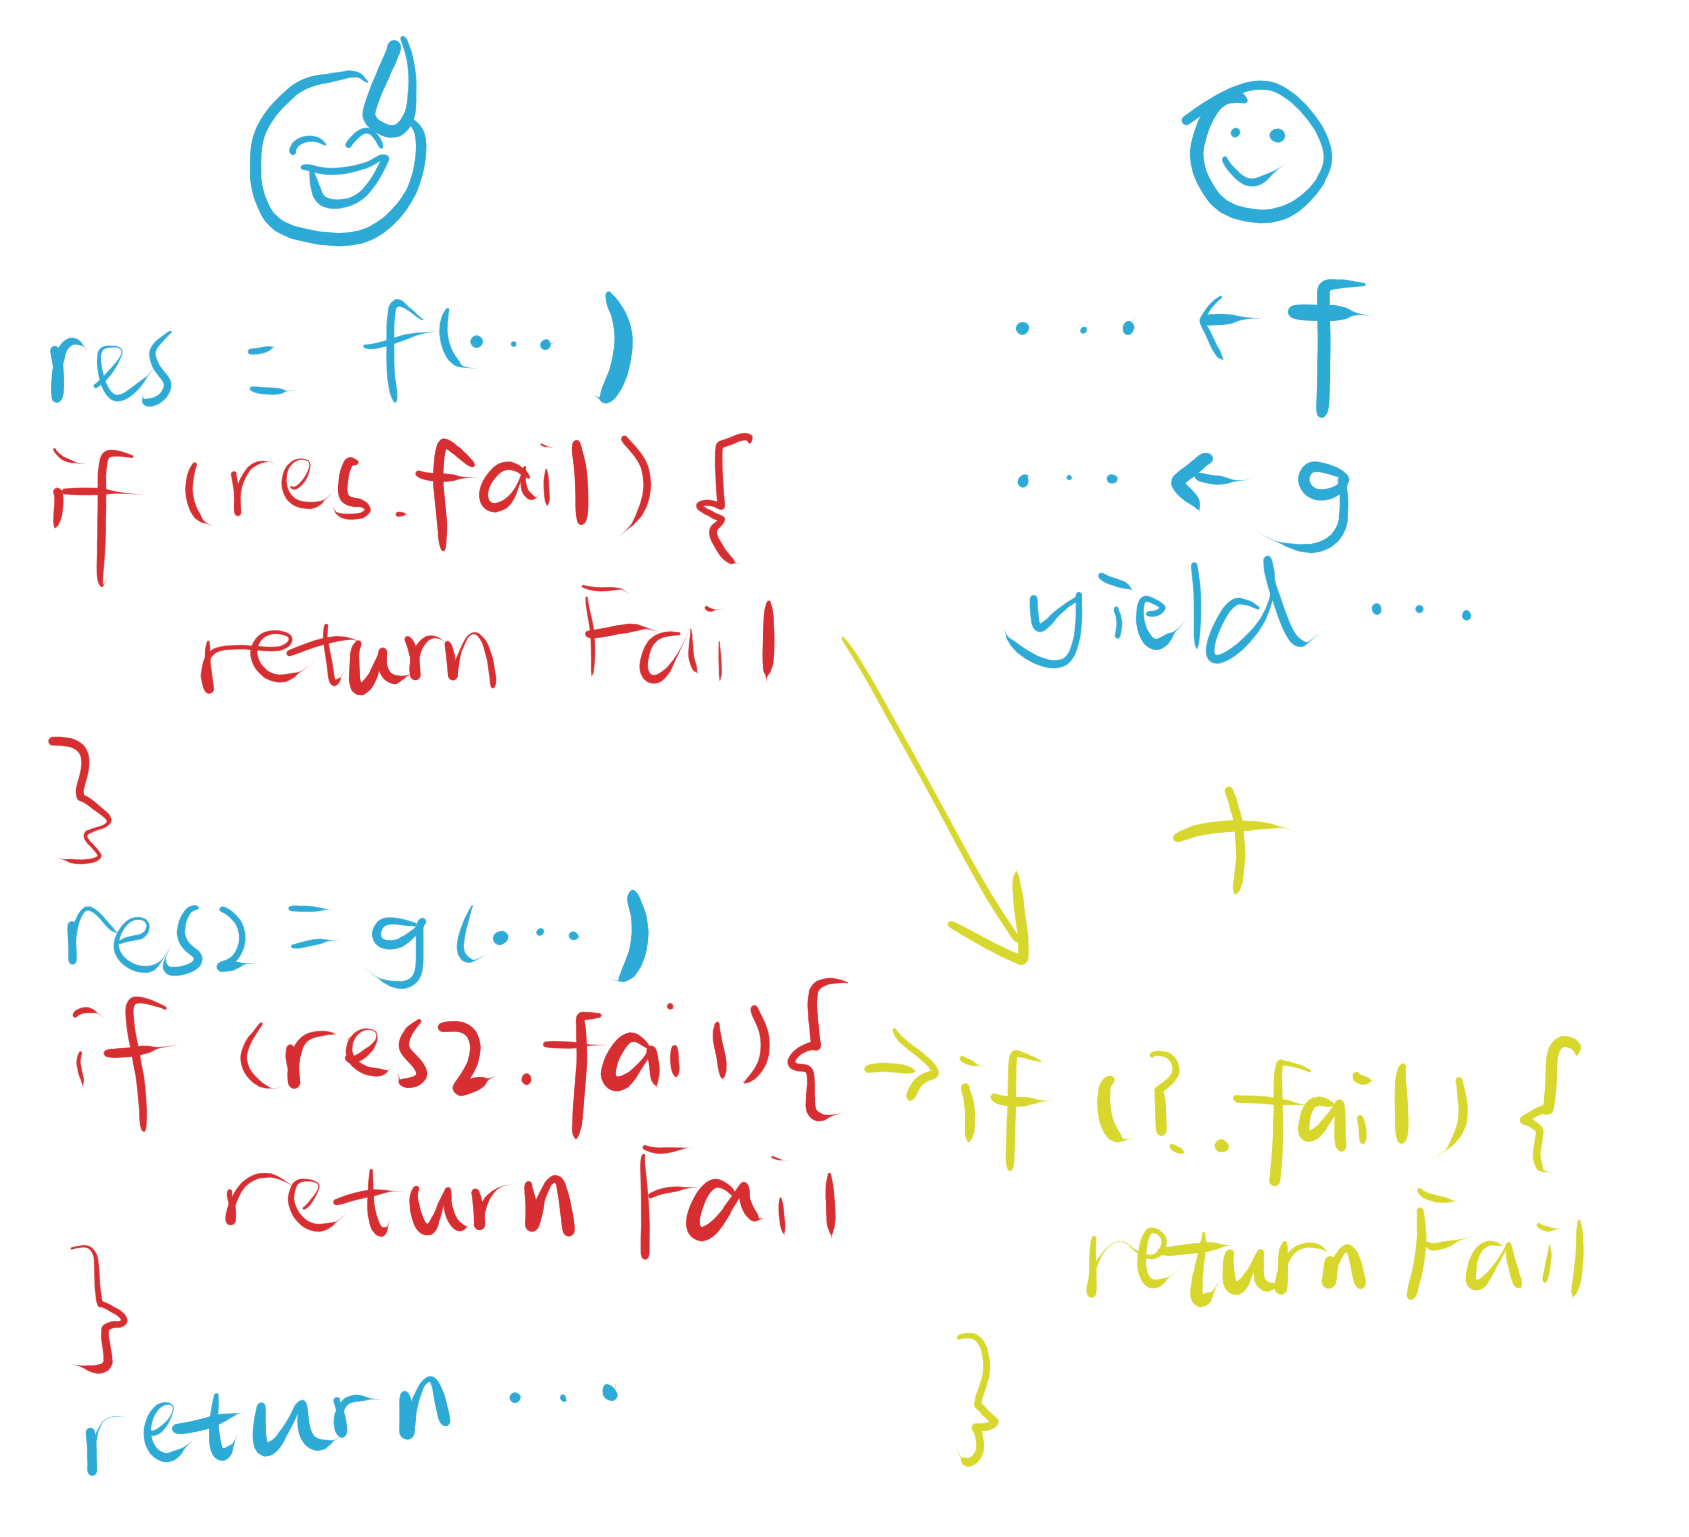 res = f(...)
if (res.fail) {
return Fail
}
res2 = g(...)
if (res2.fail){
return Fail
}
return ...
... ← f
... ← g
yield ...
+
→ if (?.fail) {
return Fail
}